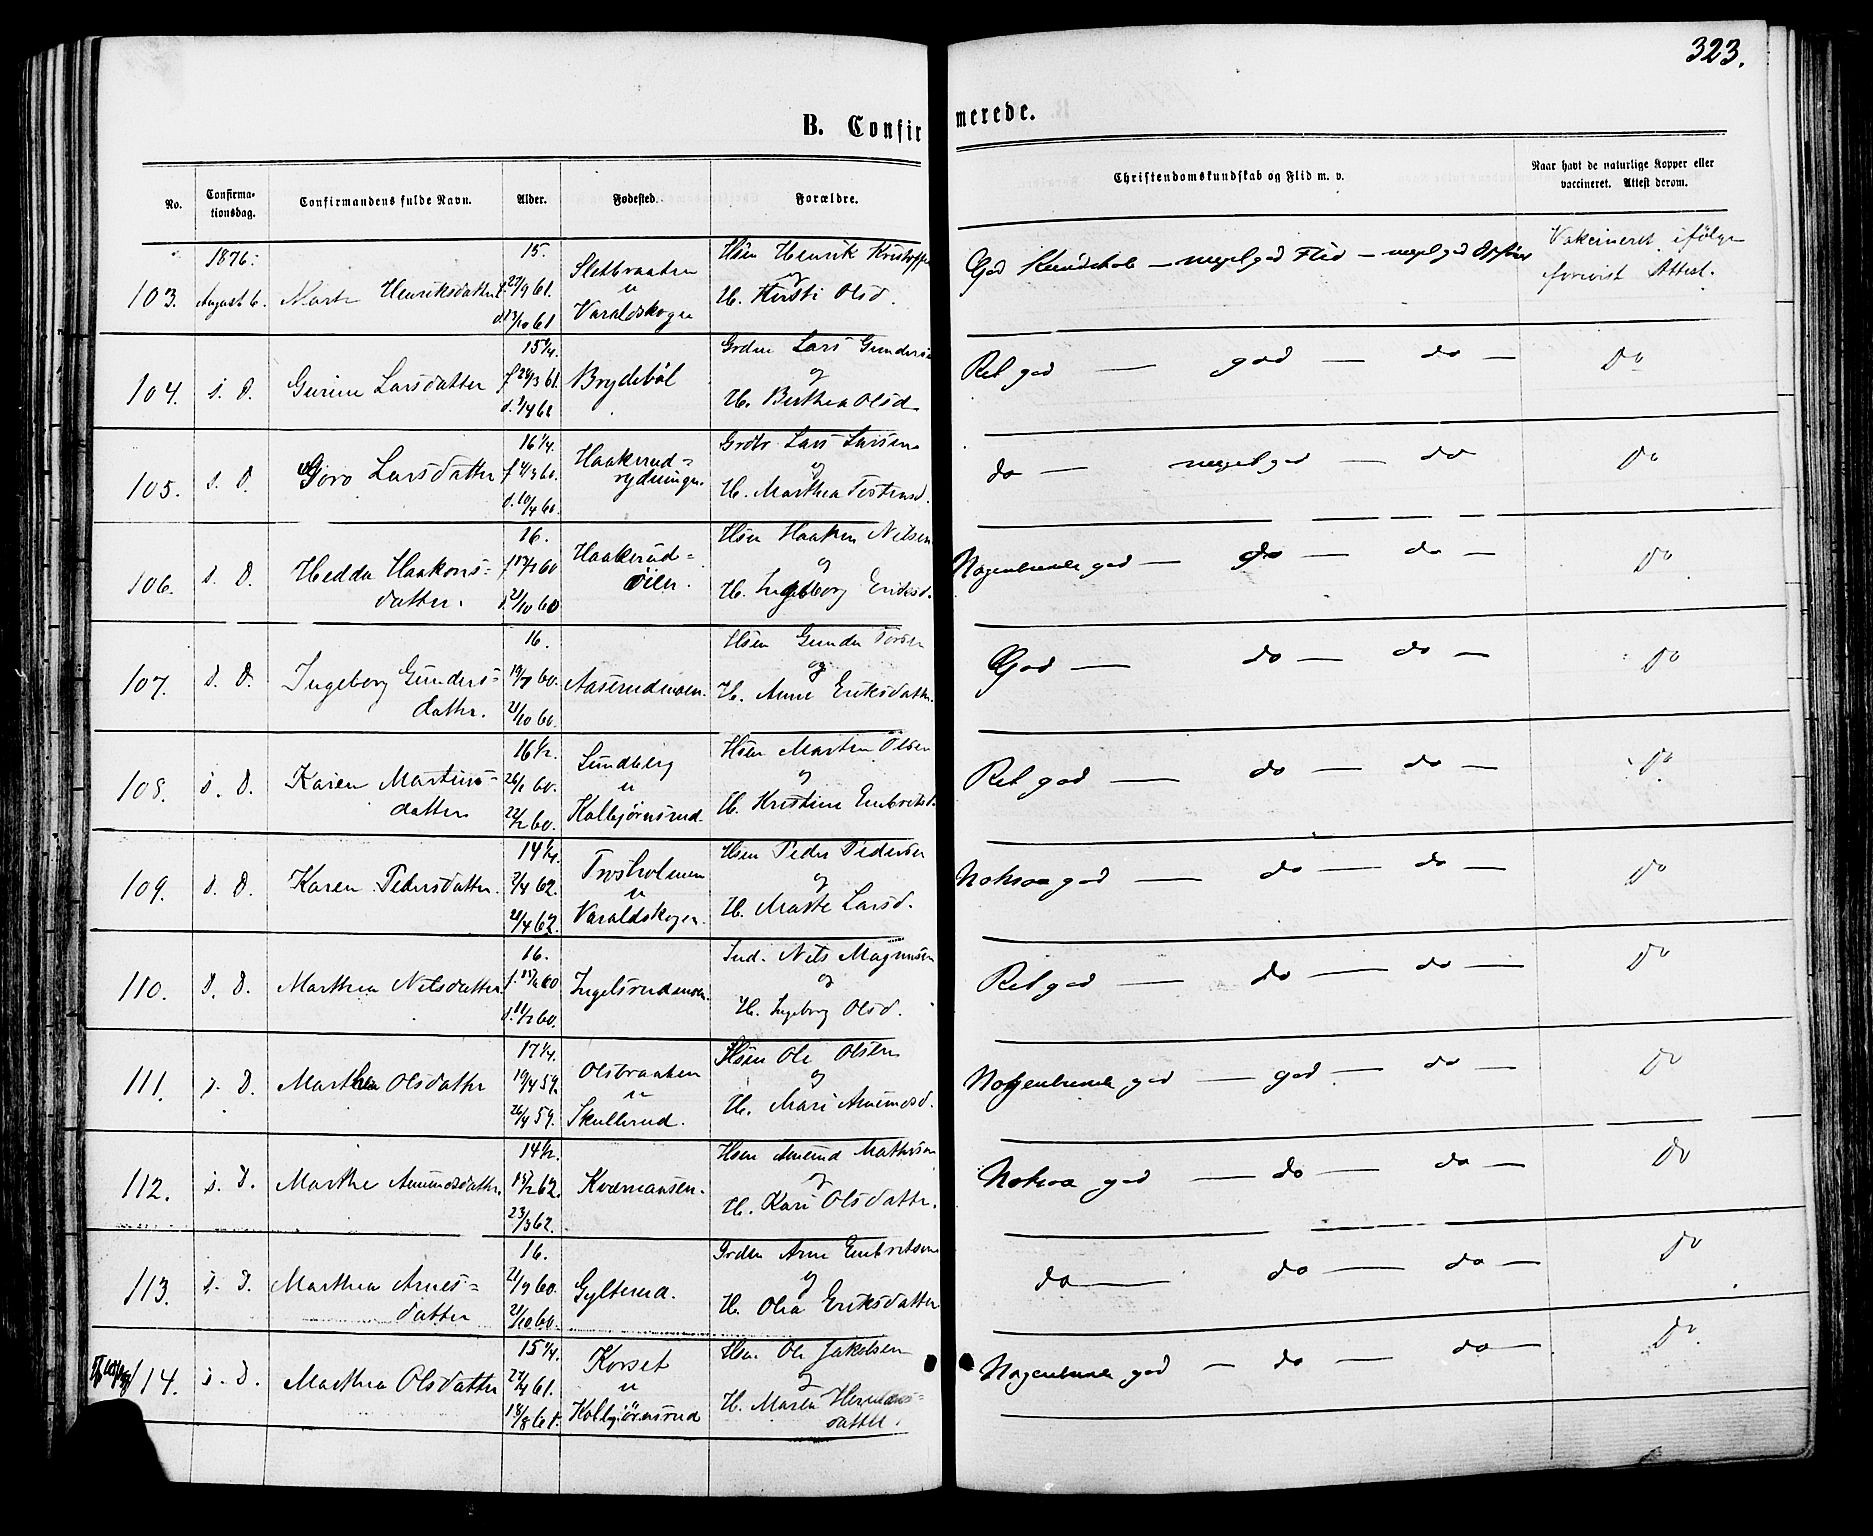 323.
B. Confir merede.
No.
Confirma-
tionsdag.
Confirmandens fulde Navn.
Alder.
Fødested.
Forældre.
Christendomskundskab og Flid m. v.
Naar havt de naturlige Kopper eller
vaccineret. Attest derom.
1876:
15.
Hsen Henrik
God Kundskab — meget god Flid — meget god
Vakcineret ifølge
forevist Attest.
103. August 6. Henriksdatter
f. 27/9 61.
d. 13/10 61
Sletbraaten
u
Varaldskogen
og
H. Kirsti Olsd.
104. s. D. Gurine Larsdatter
15 1/4.
f 24/3 61.
d. 1/4 61
Brydebøl
Grdm Lars Gunders
og
H. Berthea Olsd
Ret god — god — do —
Do
105. s. D. Goro Larsdatter
16 1/4.
f 4/3 60.
d. 10/4 60.
Haakerud=
rydningen
Grdbr Lars Larsen
og
H. Marthea
do — meget god — do
Do
106. s. D. Hedda Haakons=
datter.
16.
60
21/10 60
Haakerud=
Hsen Haaken Nilsen
og
H. Ingeborg Eriksd.
Nogenlunde god — do — do —
Do
107. s. D. Ingeborg Gunders=
datter.
16.
60.
21/10 60.
Aaserudmoen.
Hsen Gunder
og
H. Anne Eriksdatter.
God — do — do —
Do
108. s. D. Karen Martins=
datter
16 1/2.
26/1 60.
22/2 60.
Lundberg
u
Kolbjørnsrud.
Hsen Martin Olsen
og
H. Kristine Embretsd.
Ret god — do — do —
Do
109. s. D. Karen Pedersdatter.
14 1/4.
62.
62.
u
Varaldskogen.
Hsen Peder Pedersen
og
H. Larsd.
Noksaa god — do — do —
Do
110. s. D. Marthea Nilsdatter.
16.
60
60.
Ingelsrudmoen.
Ind. Nils Magnusen
og
H. Ingeborg Olsd.
Ret god — do — do —
Do
111. s. D. Marthea Olsdatter
17 1/4.
19/4 59.
26/4 59.
Olsbraaten
u
Skullerud.
Hsen Ole Olsen
og
H. Mari Amundsd.
Nogenlunde god — god — do —
Do
112. s. D. Marthe Amundsdatter.
14 1/2.
15/2 62.
23/3 62.
Kværnaasen.
Hsen Amund
og
H. Kari Olsdatter.
Noksaa god — do — do —
Do
113. s. D. Marthea Arnes=
datter
16.
21/9 60.
21/10 60.
Gylterud.
Grdm Arne Embretsen
og
H. Olea Eriksdatter
do — do — do —
Do
114. s. D. Marthea Olsdatter
15 1/4.
61.
18/8 61.
Korset
u
Kolbjørnsrud
Hsen Ole Jakobsen
og
H. Maren Hermans=
datter.
Nogenlunde god — do — do —
Do